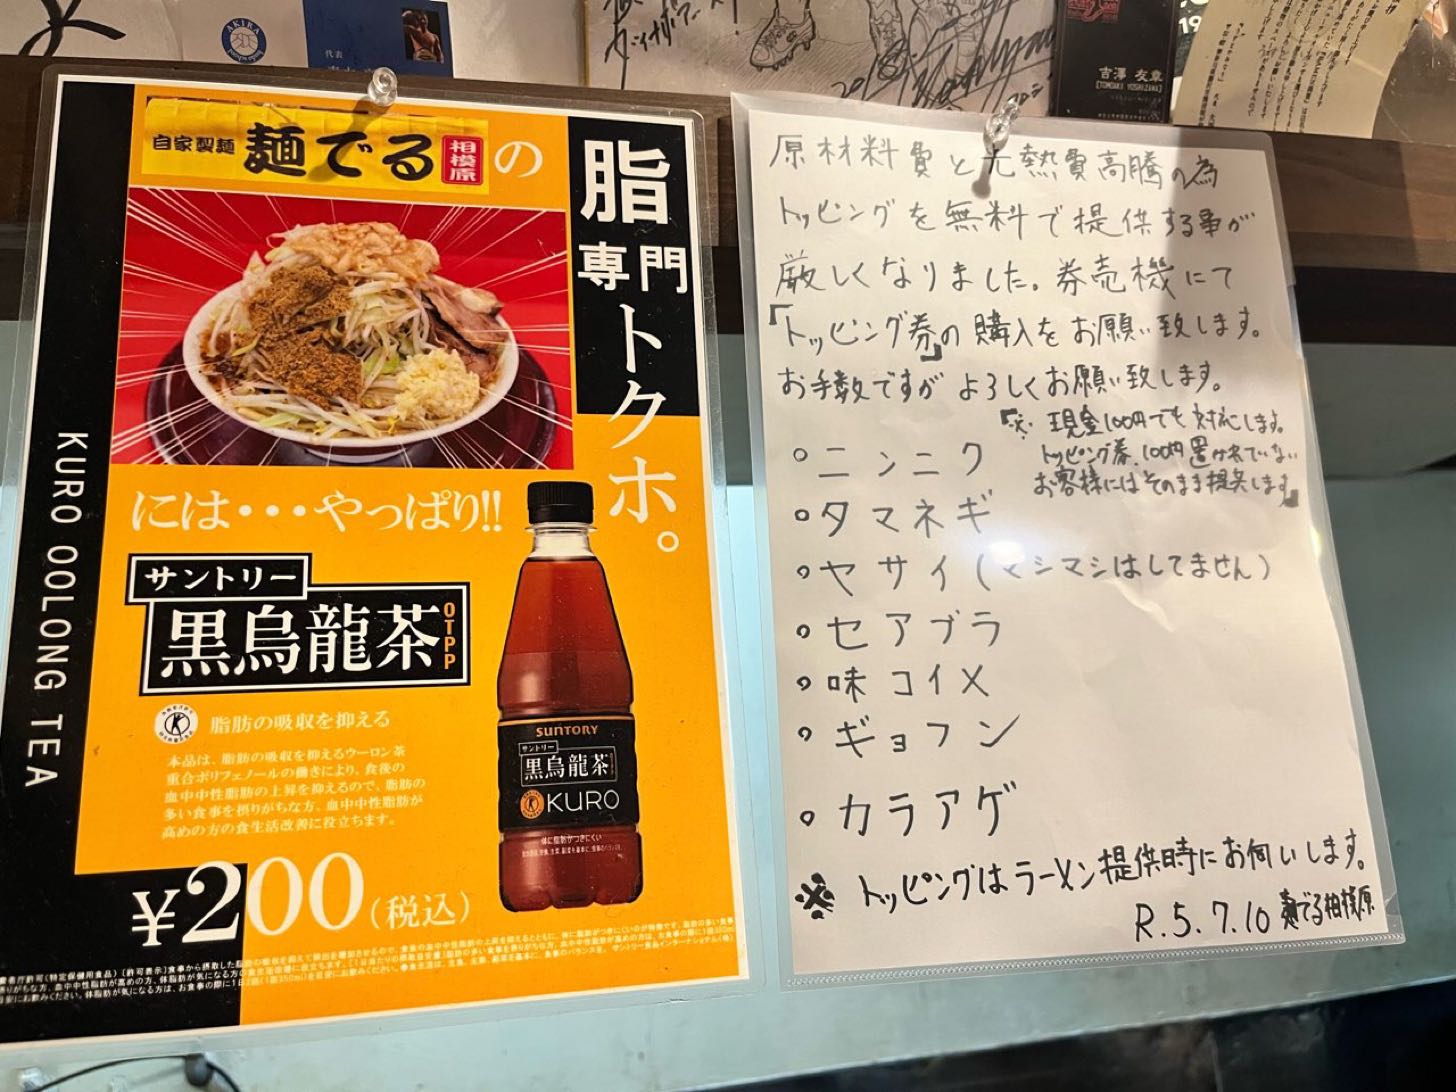 AKIRA
代表
吉澤 友章
[TOMOAKI YOSHIZAWA]
自家製麺 麺でる 相模原 の
脂
専門
トクホ。
には・・・やっぱり!!
サントリー
黒烏龍茶
OTPP
脂肪の吸収を抑える
本品は、脂肪の吸収を抑えるウーロン茶
重合ポリフェノールの働きにより、食後の
血中中性脂肪の上昇を抑えるので、脂肪の
多い食事を摂りがちな方、血中中性脂肪が
高めの方の食生活改善に役立ちます。
¥200(税込)
KURO OOLONG TEA
SUNTORY
サントリー
黒烏龍茶
KURO
体に脂肪がつきにくい
原材料費と光熱費高騰の為
トッピングを無料で提供する事が
厳しくなりました。券売機にて
「トッピング券」の購入をお願い致します。
お手数ですがよろしくお願い致します。
「※ 現金100円でも対応します。
トッピング券、100円置かれていない
お客様にはそのまま提供します」
ニンニク
タマネギ
ヤサイ(マシマシはしてません)
セアブラ
味コイメ
ギョフン
カラアゲ
※ トッピングはラーメン提供時にお伺いします。
R.5.7.10 麺でる相模原